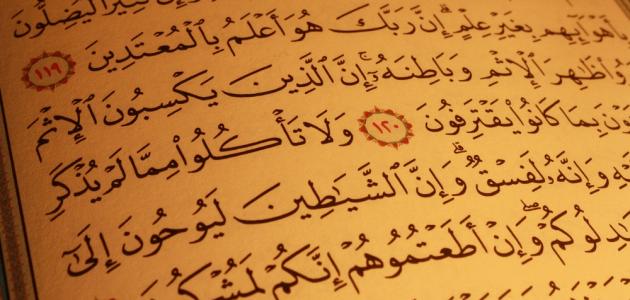 وَإِنَّ كَثِيرًا لَّيُضِلُّونَ
بِأَهْوَآئِهِم بِغَيْرِ عِلْمٍ ۗ إِنَّ رَبَّكَ هُوَ أَعْلَمُ بِٱلْمُعْتَدِينَ ١١٩
وَذَرُوا۟ ظَٰهِرَ ٱلْإِثْمِ وَبَاطِنَهُۥٓ ۚ إِنَّ ٱلَّذِينَ يَكْسِبُونَ ٱلْإِثْمَ
سَيُجْزَوْنَ بِمَا كَانُوا۟ يَقْتَرِفُونَ ١٢٠ وَلَا تَأْكُلُوا۟ مِمَّا لَمْ يُذْكَرِ
عَلَيْهِ وَإِنَّهُۥ لَفِسْقٌ ۗ وَإِنَّ ٱلشَّيَٰطِينَ لَيُوحُونَ إِلَىٰٓ
لِيُجَٰدِلُوكُمْ ۖ وَإِنْ أَطَعْتُمُوهُمْ إِنَّكُمْ لَمُشْرِكُونَ